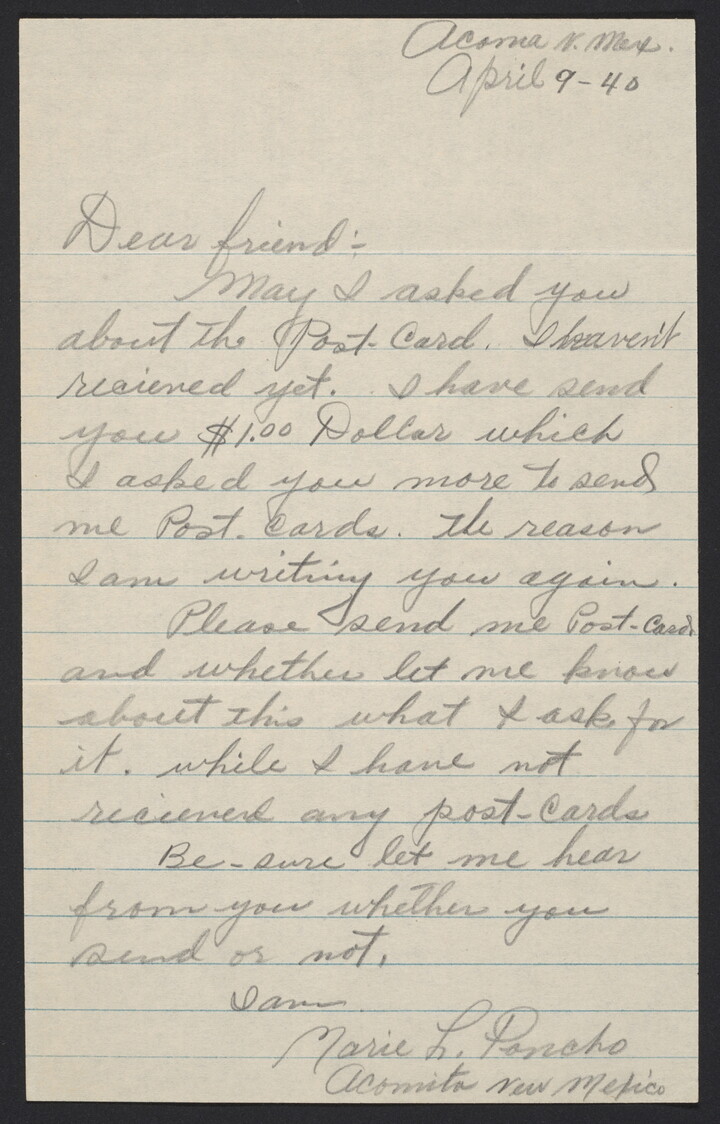 Acoma N. Mex.
April 9-40
Dear friend:-
May I asked you
about the Post-Card. I haven't
recieved yet. I have send
you $1.00 Dollar which
I asked you more to send
me Post-Cards. The reason
I am writing you again.
Please send me Post-Cards
and whether let me know
about this what I ask for
it. while I have not
recieved any post-Cards
Be-sure let me hear
from you whether you
send or not.
I am
Marie L. Poncho
Acomita New Mexico